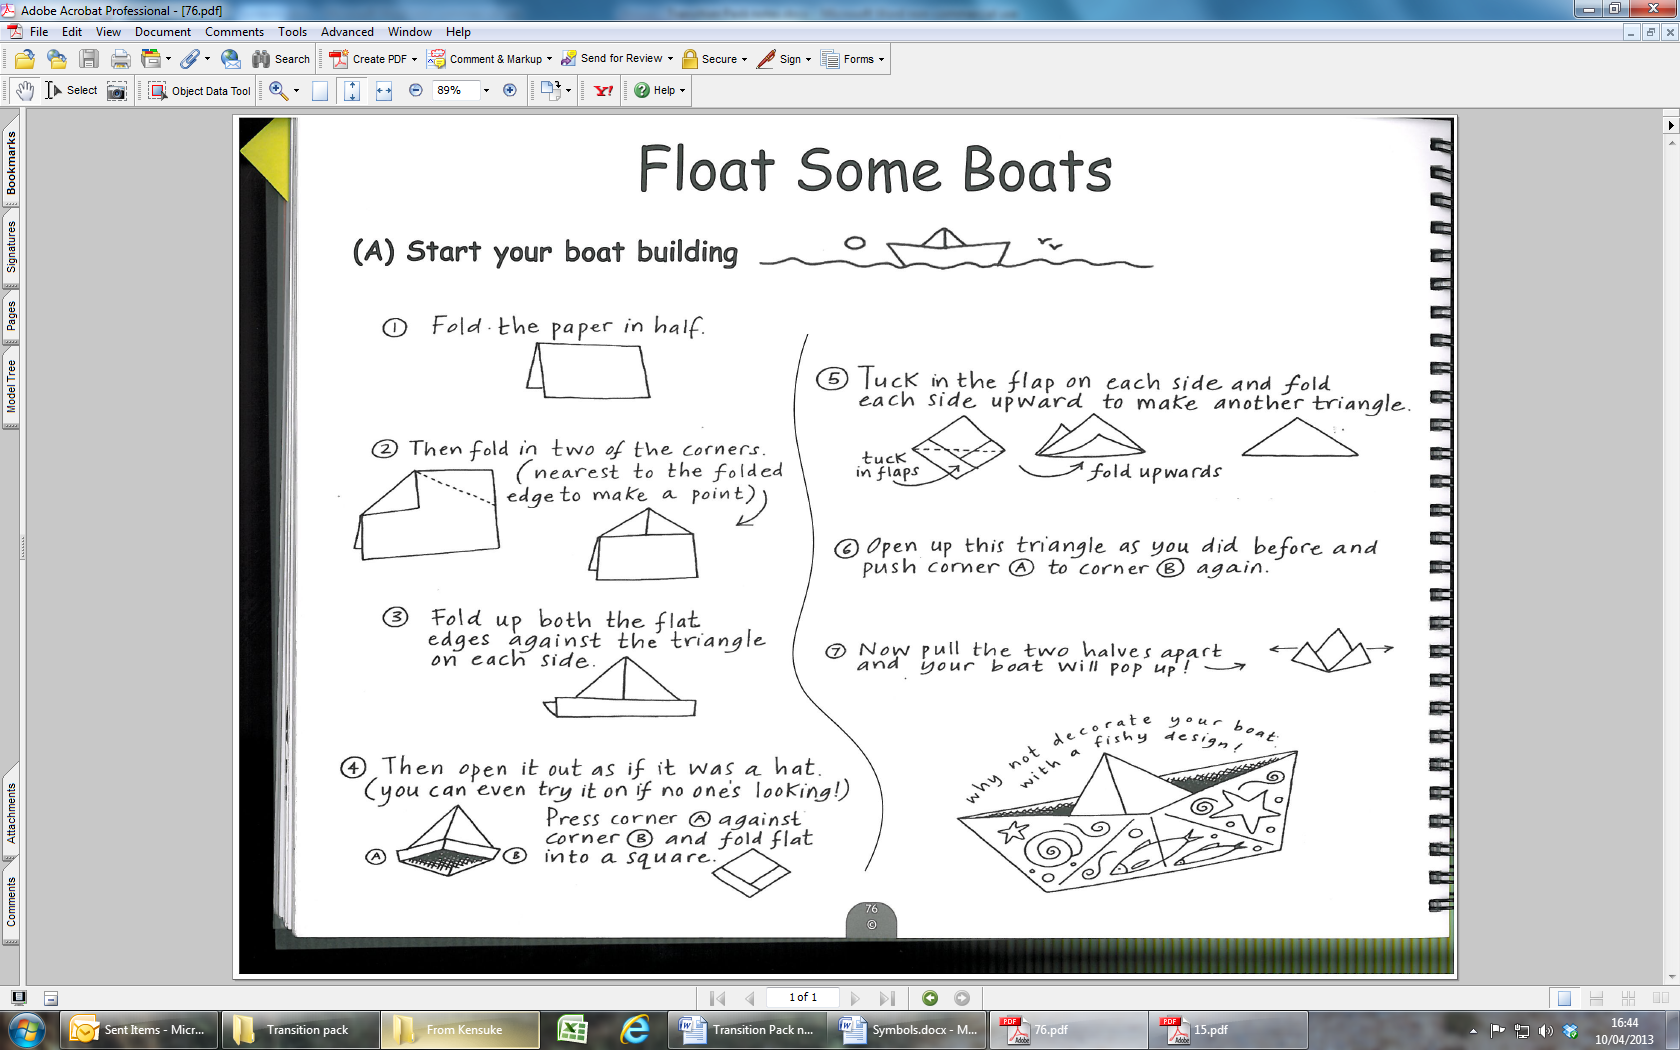 Adobe Acrobat Professional - [76.pdf]
File Edit View Document Comments Tools Advanced Window Help
Search Create PDF Comment & Markup Send for Review Secure Sign Forms
Select Object Data Tool 89% Y! Help
Bookmarks
Signatures
Pages
Model Tree
Attachments
Comments
Float Some Boats
(A) Start your boat building
① Fold the paper in half.
② Then fold in two of the corners.
(nearest to the folded
edge to make a point)
③ Fold up both the flat
edges against the triangle
on each side.
④ Then open it out as if it was a hat.
(you can even try it on if no one's looking!)
Press corner Ⓐ against
corner Ⓑ and fold flat
into a square.
Ⓐ Ⓑ
⑤ Tuck in the flap on each side and fold
each side upward to make another triangle.
tuck
in flaps
fold upwards
⑥ Open up this triangle as you did before and
push corner Ⓐ to corner Ⓑ again.
⑦ Now pull the two halves apart
and your boat will pop up!
why not decorate your boat
with a fishy design!
76
©
1 of 1
Sent Items - Micr... Transition pack From Kensuke Transition Pack n... Symbols.docx - M... 76.pdf 15.pdf
16:44
10/04/2013